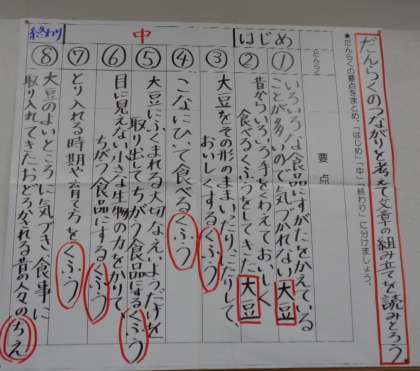 だんらくのつながりを考えて文章の組み立てを読みとろう。
★だんらくの要点をまとめ、「はじめ」「中」「終わり」に分けましょう。
だんらく
要点
はじめ
①
いろいろな食品にすがたをかえている
ことが多いので気づかれない大豆
②
昔からいろいろ手をくわえておいしく
食べるくふうをしてきた大豆
中
③
大豆をその形のままいったり、にたりして、
おいしくするくふう
④
こなにひいて食べるくふう
⑤
大豆にふくまれる大切なえいようだけを
取り出してちがう食品にするくふう
⑥
目に見えない小さな生物の力をかりて、
ちがう食品にするくふう
⑦
とり入れる時期や育て方をくふう
終わり
⑧
大豆のよいところに気づき、食事に
取り入れてきたおどろかされる昔の人々のちえ